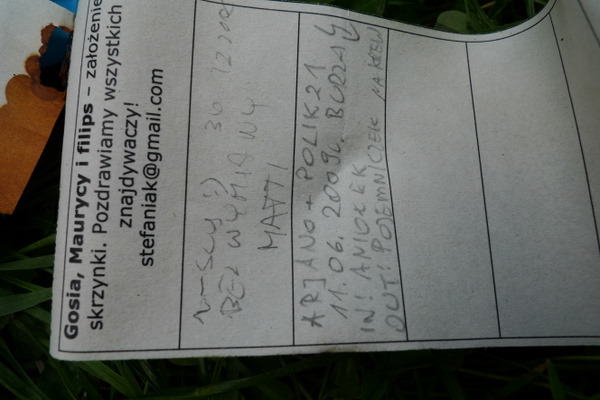 Gosia, Maurycy i filips – założenie
skrzynki. Pozdrawiamy wszystkich
znajdywaczy!
stefaniak@gmail.com
:) 30 12
BEZ WYMIANY.
MATTI
ARJANO + POLIK21
11.06.2009r. BURZA
IN: ANIOŁEK
OUT: POJEMNICZEK NA